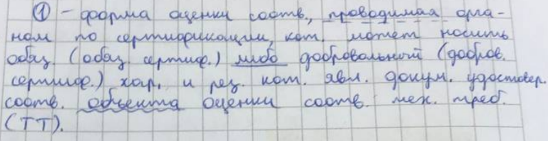 ① - форма оценки соотв, проводимая орга-
ном по сертификации, кот. может носить
обяз. (обяз. сертиф.) либо добровольный (добров.
сертиф.) хар. и рез. кот. явл. докум. удостовер.
соотв. объекта оценки соотв. тех. треб.
(ТТ).